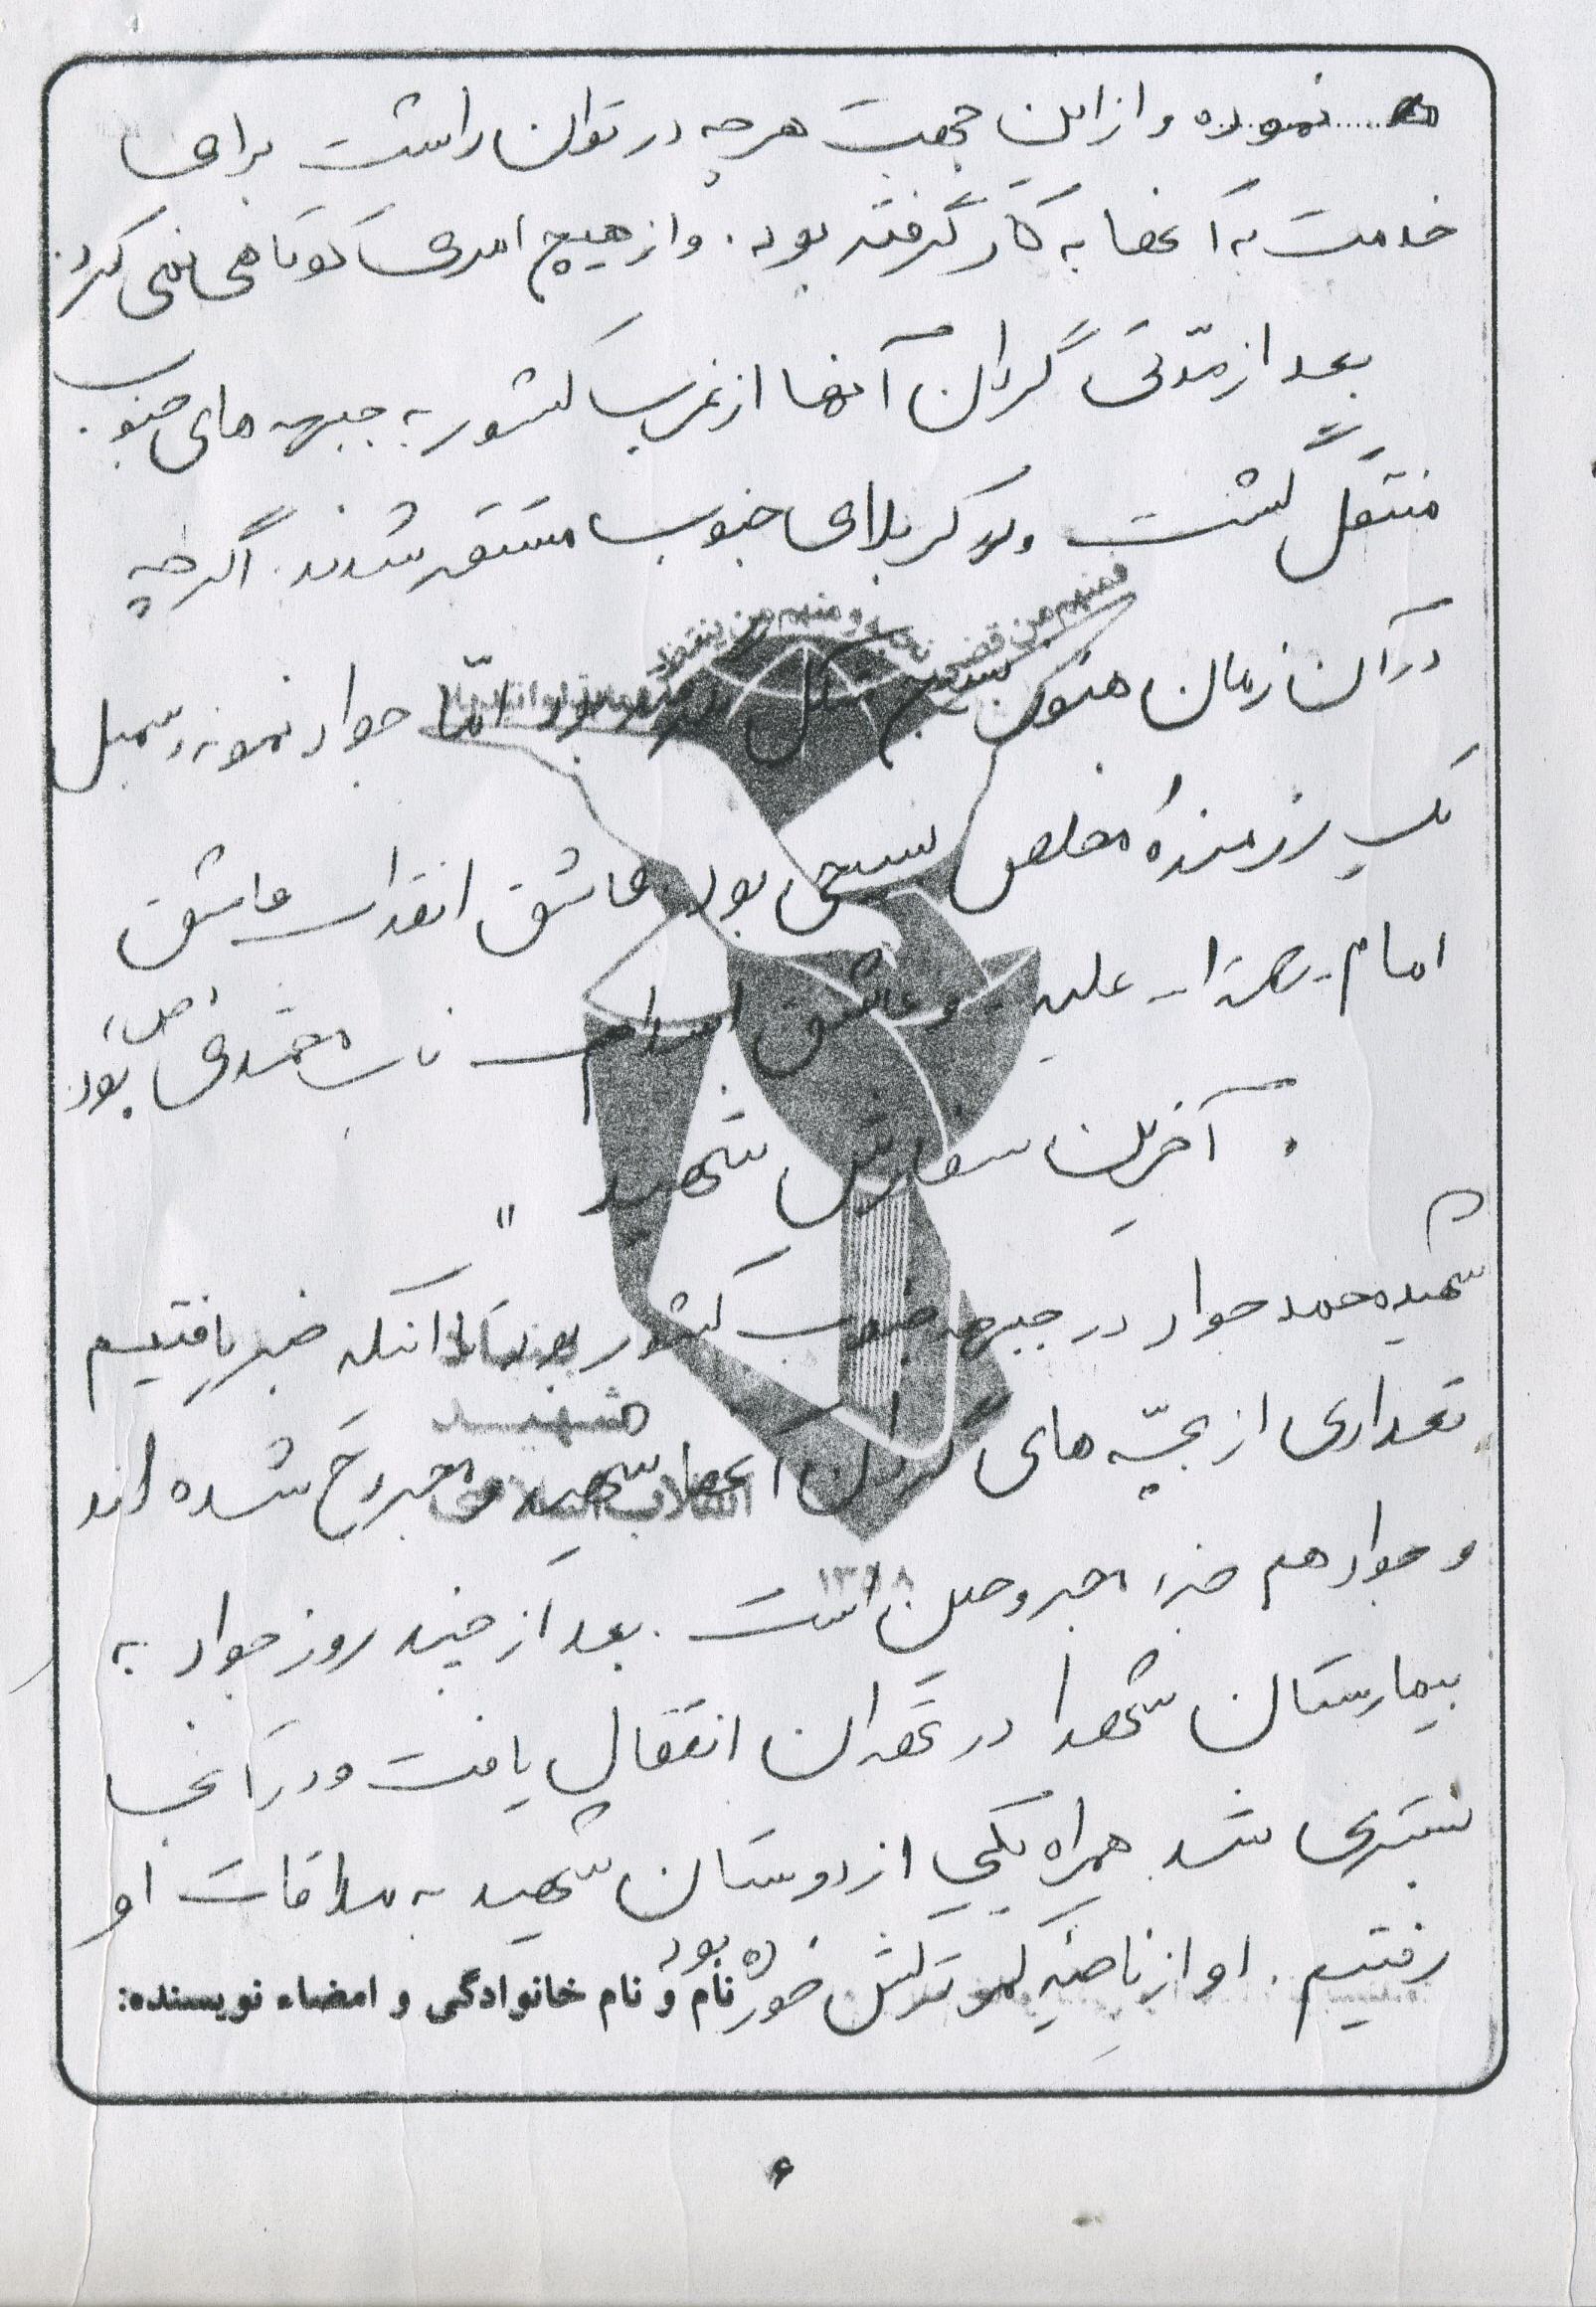 نموده و از این جهت هر چه در توان داشت برای
خدمت به آنها به کار گرفته بود. و از هیچ امری کوتاهی نمی کرد.
بعد از مدّتی گردان آنها از غرب کشور به جبهه های جنوب
منتقل گشت و در کربلای جنوب مستقر شدند. اگر چه
در آن زمان هنوز بسیج شکل نگرفته بود امّا جواد نمونه و سمبل
یک رزمندهٔ مخلص بسیجی بود. عاشق انقلاب عاشق
امام و شهدا عاشق اسلام ناب محمدی (ص) بود
آخرین سفارش شهید "
شهید محمد جواد در جبهه جنوب کشور بود تا اینکه خبر یافتیم
تعدادی از بچّه های گردان آنها شهید و مجروح شده اند
و جواد هم جزء مجروحین است. بعد از چند روز جواد به
بیمارستان شهدا در تهران انتقال یافت و در آنجا
بستری شد همراه یکی از دوستان شهید به ملاقات او
رفتیم. او از ناحیه کمر ترکش خورده بود
نام و نام خانوادگی و امضاء نویسنده:
فمنهم من قضی نحبه و منهم من ینتظر
بنیاد
شهید
انقلاب اسلامی
۱۳۵۸
۶